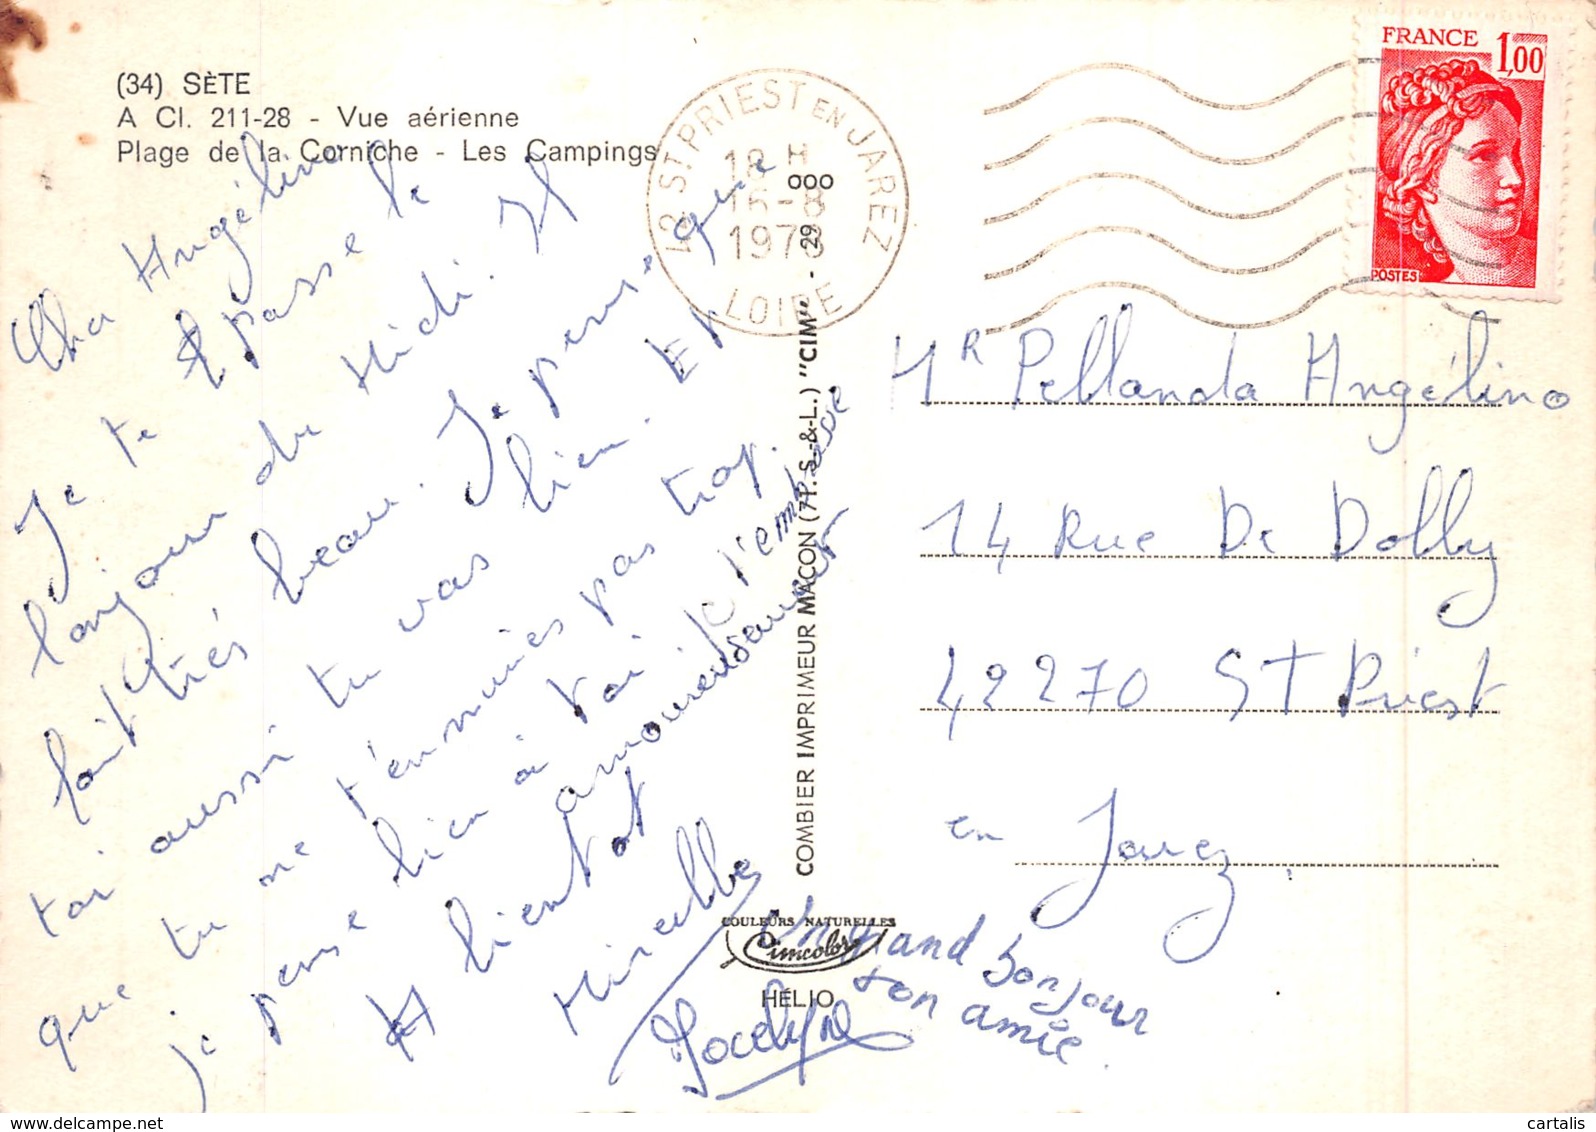 (34) SÈTE
A Cl. 211-28 - Vue aérienne
Plage de la Corniche - Les Campings
42 ST PRIEST EN JAREZ
18 H
15-8
1978
LOIRE
FRANCE 1,00
POSTES
Cher Angélino
Je te passe le
bonjour du Midi. Il
fait très beau. Je pense que
toi aussi tu vas bien. Et
que tu ne t'ennuies pas trop.
je pense bien à toi je t'embrasse
amoureusement
A bientot
Mireille
Jocelyne
Un grand bonjour
ton amie.
Mr Pellanda Angélino
14 Rue De Dolby
42270 ST Priest
en Jarez
COMBIER IMPRIMEUR MACON (71. S.-&-L.) "CIM" - 29
COULEURS NATURELLES
Cimcolor
HÉLIO
cartalis
delcampe.net